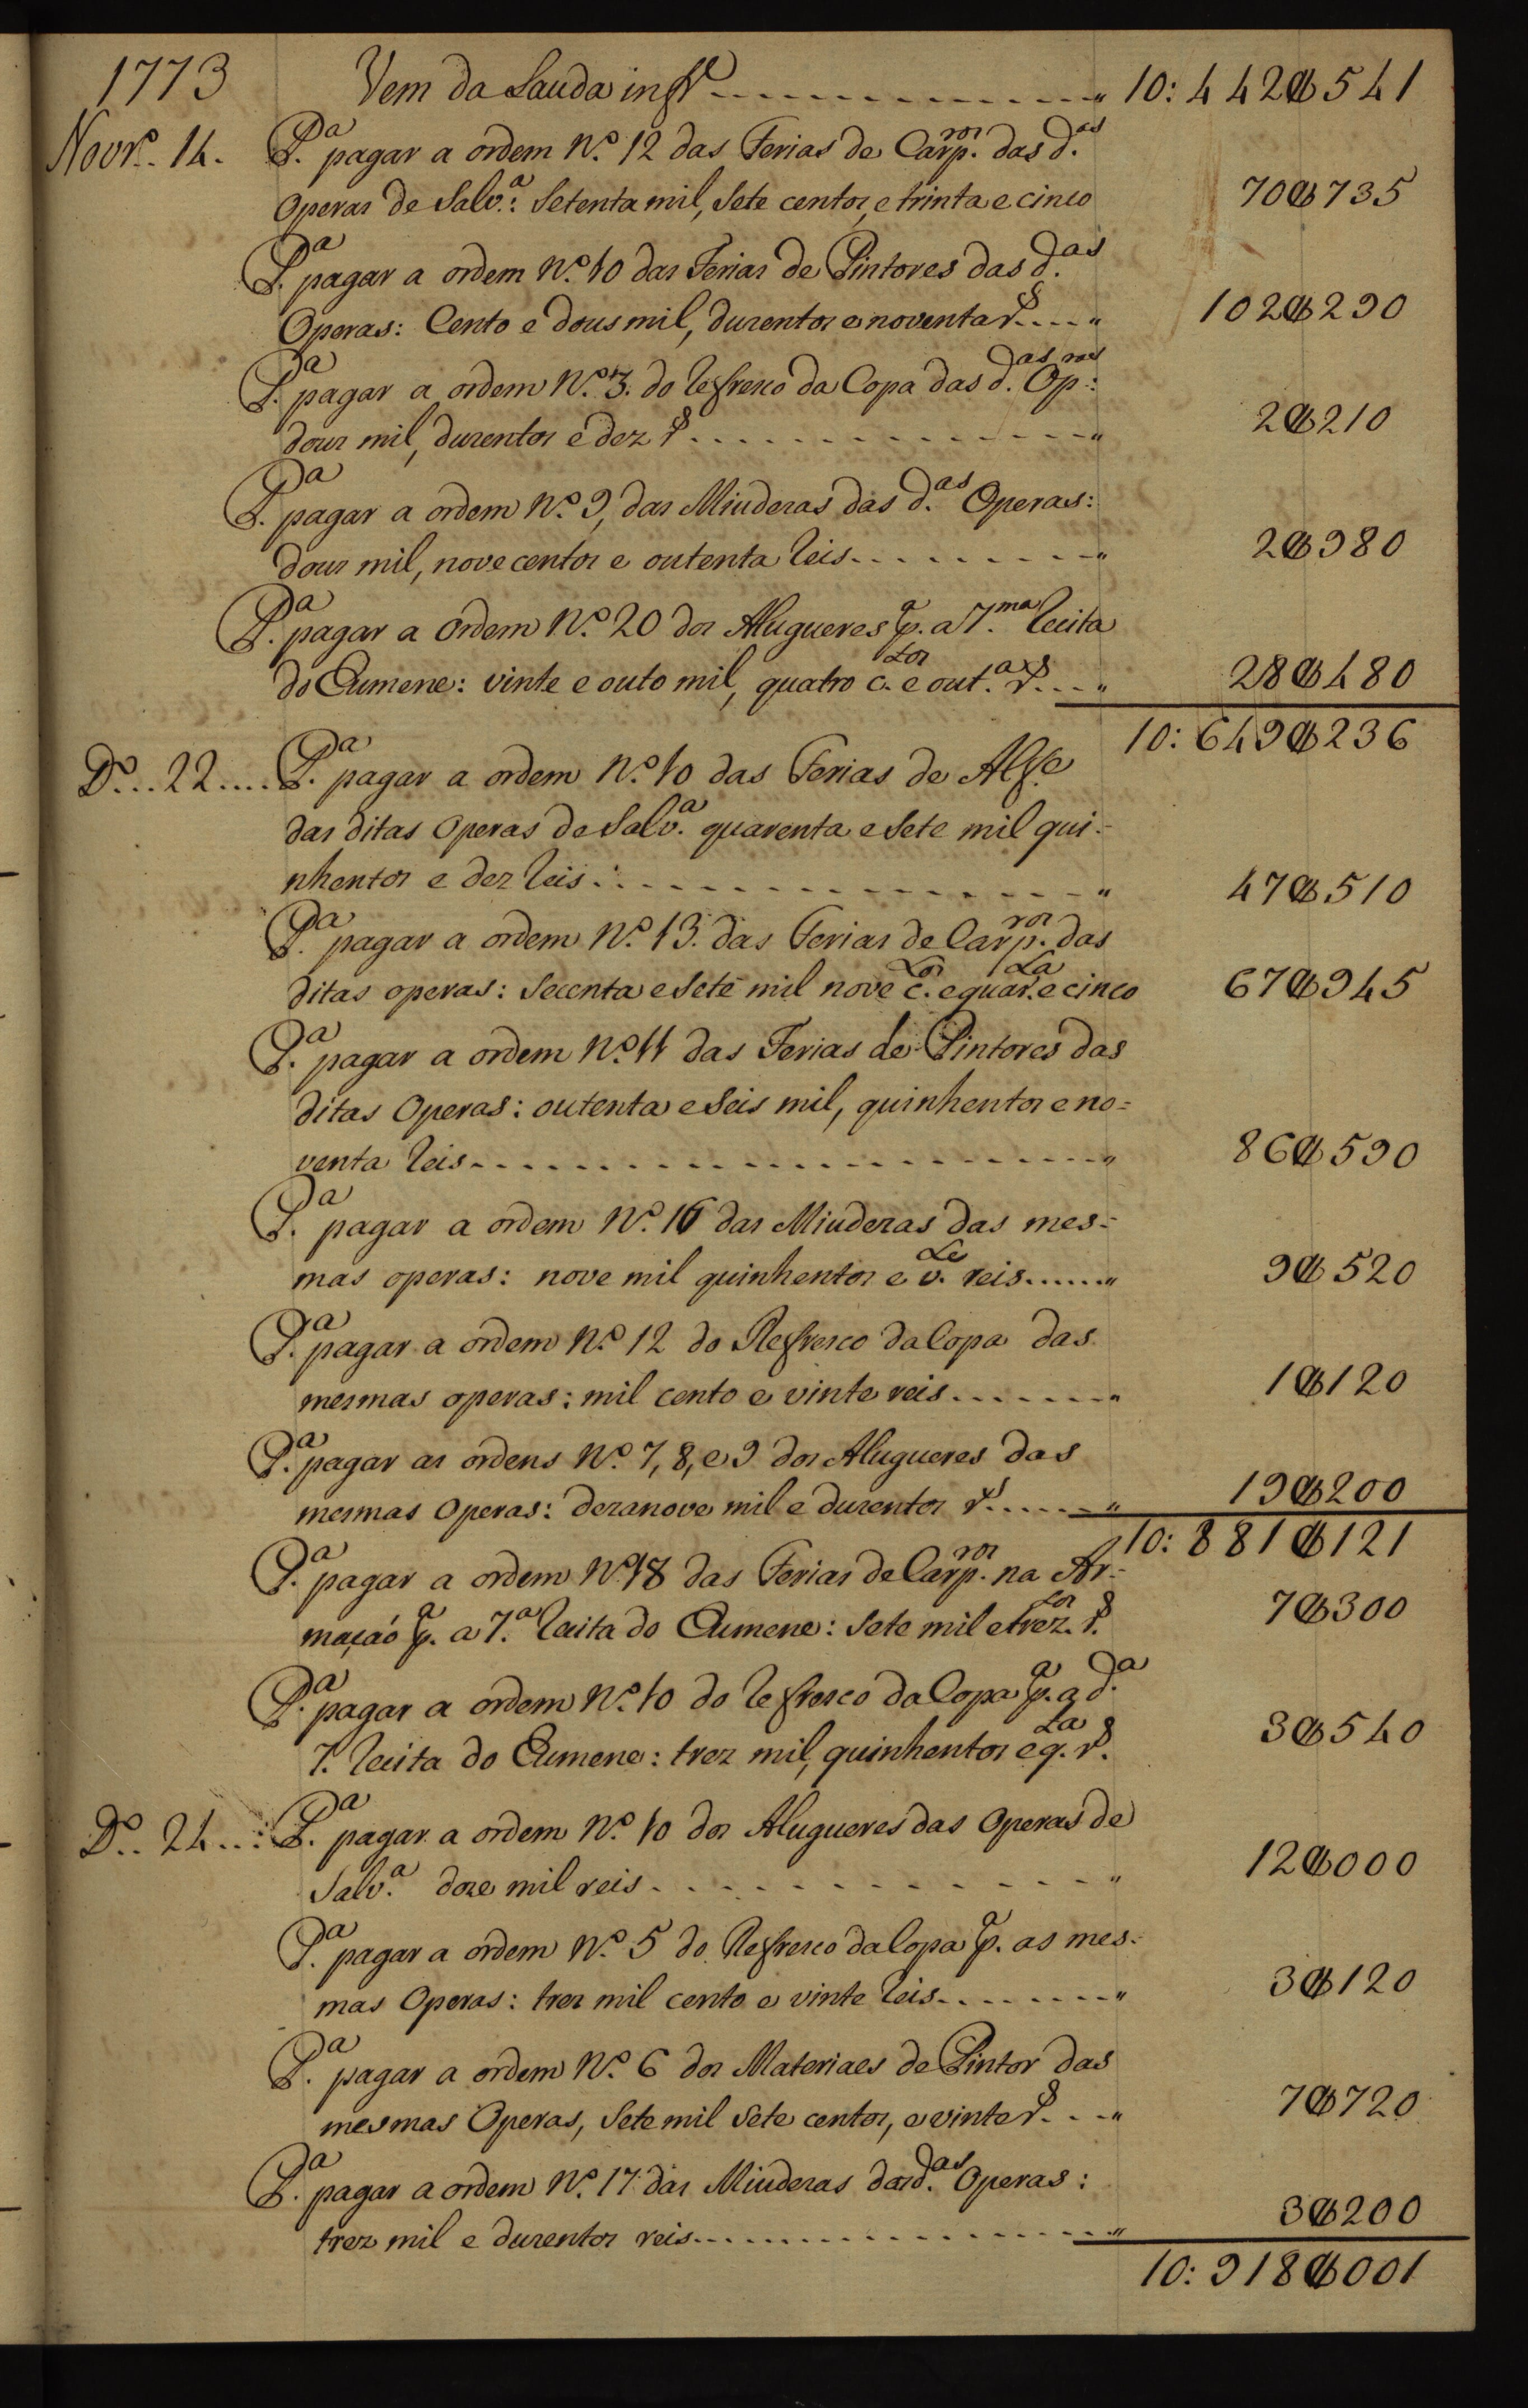 1773 Vem da Lauda infr.ª 10: 442$541
Novr.º 14. P.ª pagar a ordem N.º 12 das Ferias de Carp.ros das d.as
Operas de Salv.ª: Setenta mil, Sete centos, e trinta e cinco 70$735
P.ª pagar a ordem N.º 10 das Ferias de Pintores das d.as
Operas: Cento e dous mil, duzentos e noventa r.s 102$290
P.ª pagar a ordem N.º 3. do Refresco da Copa das d.as Op.ras:
dous mil, duzentos e dez r.s 2$210
P.ª pagar a ordem N.º 9, das Miudezas das d.as Operas:
dous mil, nove centos e outenta Reis 2$980
P.ª pagar a ordem N.º 20 dos Alugueres p.ª a 7.ma Recita
do Eumene: vinte e outo mil, quatro c.tos e out.ta r.s 28$480
10: 649$236
D.º 22 P.ª pagar a ordem N.º 10 das Ferias de Alf.e
das ditas Operas de Salv.ª quarenta e Sete mil qui-
nhentos e dez Reis 47$510
P.ª pagar a ordem N.º 13. das Ferias de Carp.ros das
ditas operas: Secenta e Sete mil nove c.tos e quar.ta e cinco 67$945
P.ª pagar a ordem N.º 11 das Ferias de Pintores das
ditas Operas: outenta e Seis mil, quinhentos e no=
venta Reis 86$590
P.ª pagar a ordem N.º 16 das Miudezas das mes=
mas operas: nove mil quinhentos e v.te reis 9$520
P.ª pagar a ordem N.º 12 do Refresco da Copa das
mesmas operas: mil cento e vinte reis 1$120
P.ª pagar as ordens N.º 7, 8, e 9 dos Alugueres das
mesmas Operas: dezanove mil e duzentos r.s 19$200
10: 881$121
P.ª pagar a ordem N.º 18 das Ferias de Carp.ros na Ar-
mação p.ª a 7.ª Recita do Eumene: Sete mil e trez.tos r.s 7$300
P.ª pagar a ordem N.º 10 do Refresco da Copa p.ª a d.ª
7. Recita do Eumene: trez mil, quinhentos e q.ta r.s 3$540
D.º 24 P.ª pagar a ordem N.º 10 dos Alugueres das Operas de
Salv.ª doze mil reis 12$000
P.ª pagar a ordem N.º 5 do Refresco da Copa p.ª as mes-
mas Operas: trez mil cento e vinte Reis 3$120
P.ª pagar a ordem N.º 6 dos Materiaes de Pintor das
mesmas Operas, Sete mil Sete centos, e vinte r.s 7$720
P.ª pagar a ordem N.º 17 das Miudezas das d.as Operas:
trez mil e duzentos reis 3$200
10: 918$001